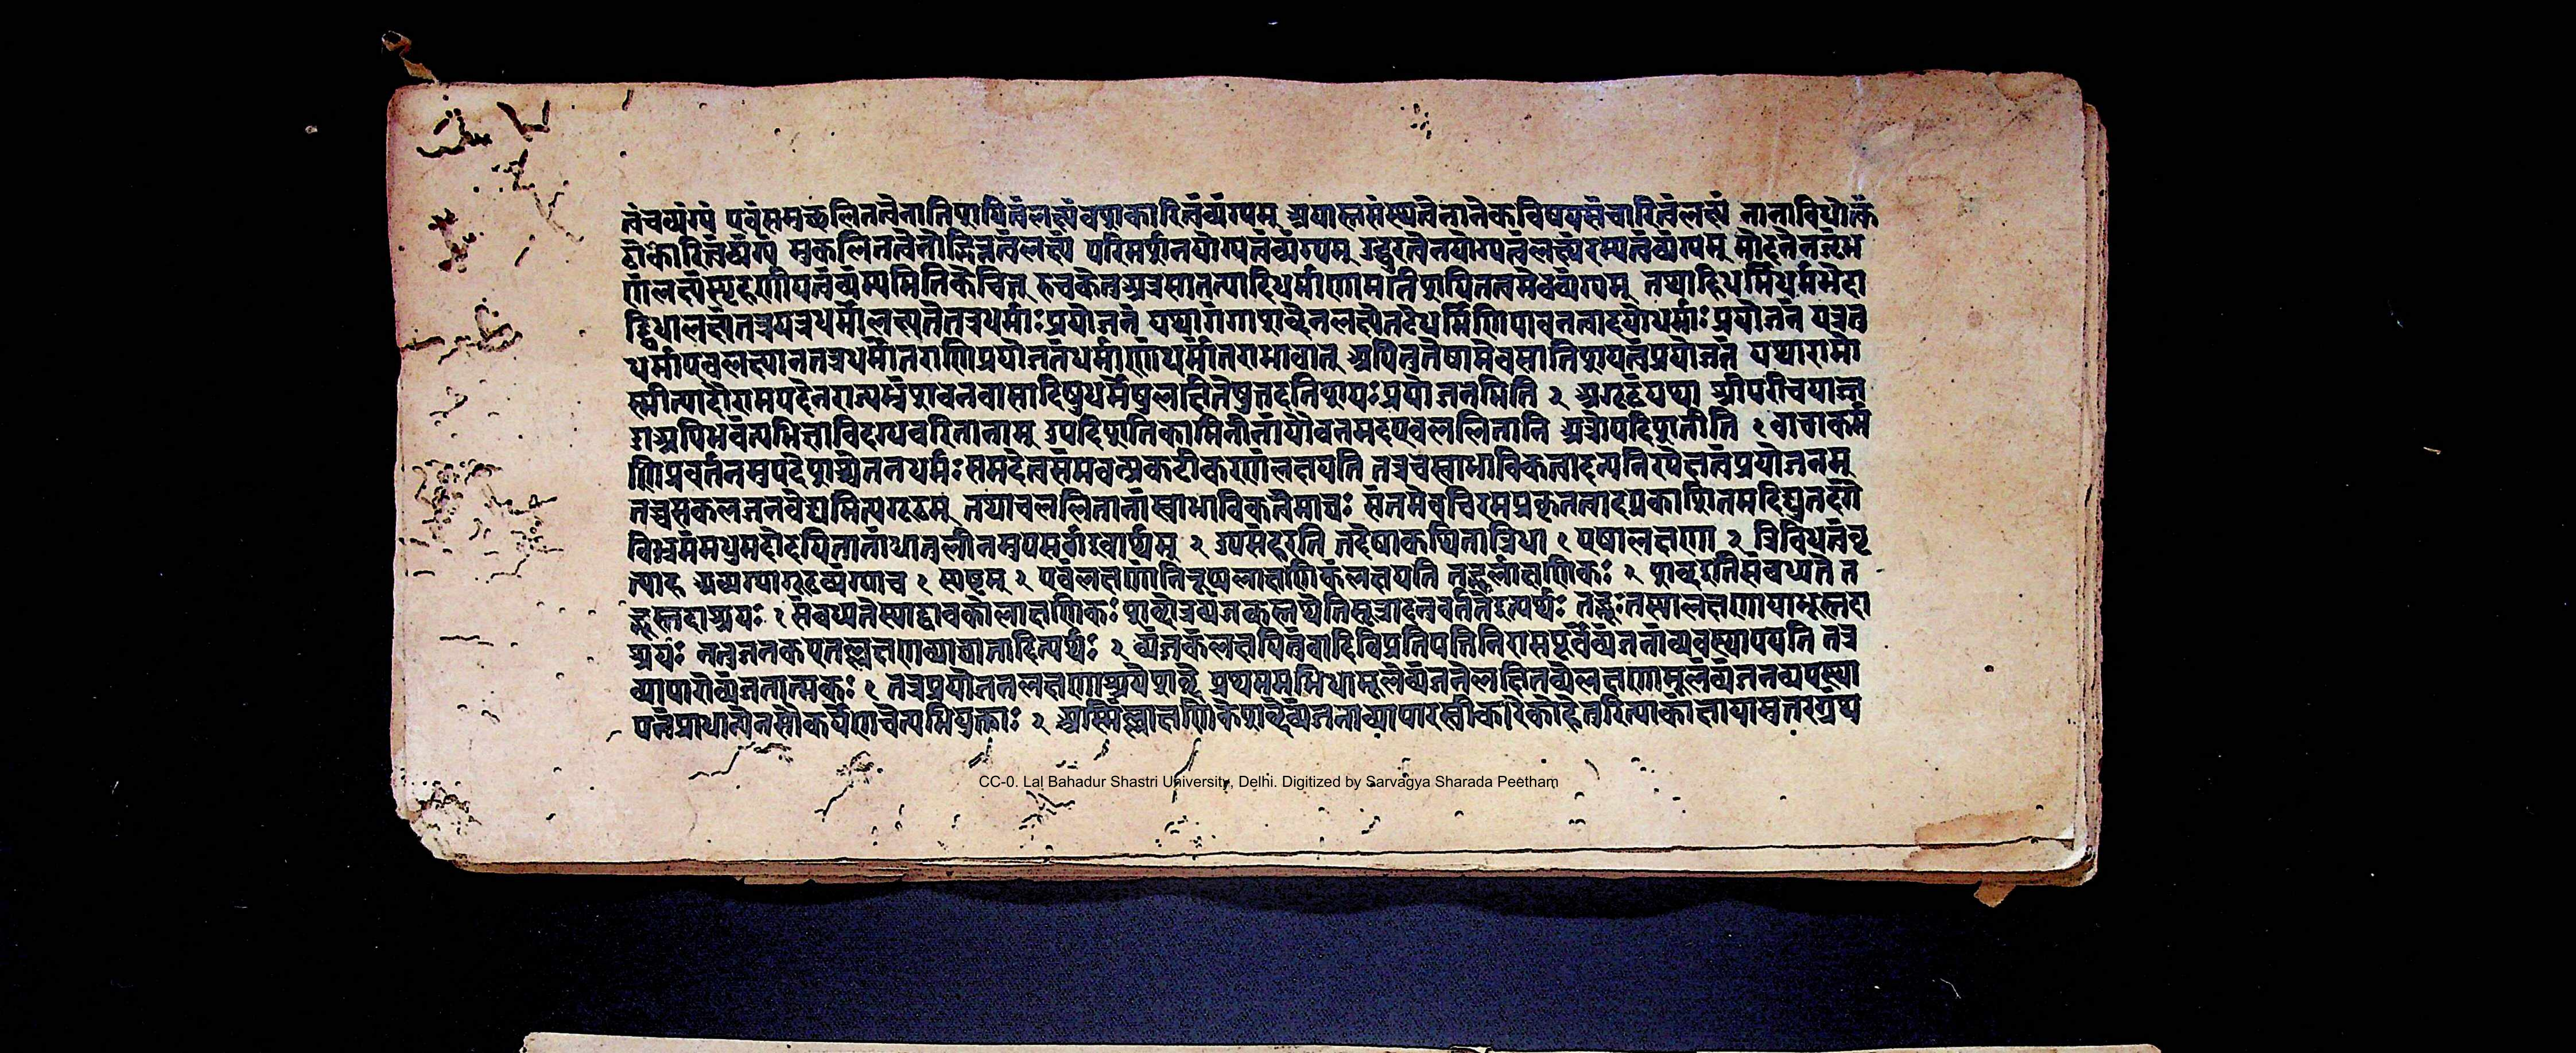 त्वंचव्यंग्यं एवंसमुच्छलितत्वेनातिशयितत्वंलक्ष्यंवशकारित्वंव्यंग्यम् अपास्तसंस्थत्वेनानेकविषयसंचारित्वंलक्ष्यं नानाविधोत्कं
ठाकारित्वंव्यंग्यं मुकुलितत्वेनोद्भिन्नत्वंलक्ष्यं परिमर्शनयोग्यत्वंव्यंग्यम् उद्धुरत्वेनयोग्यत्वंलक्ष्यंरम्यत्वंव्यंग्यम् मोदनेनजृंभ
णंलक्ष्यंस्पृहणीयत्वंव्यंग्यमितिकेचित् अत्रसातत्यादिधर्माणामतिशयितत्वमेवव्यंग्यम् तथाहिधर्मिधर्मभेदा
द्द्विधालक्षणातत्रयत्रधर्मीलक्ष्यतेतत्रधर्माःप्रयोजनं यथागंगाशब्देनलक्ष्येतटेधर्मिणिपावनत्वादयोधर्माःप्रयोजनं यत्रतु
धर्माएवलक्ष्यानतत्रधर्मांतराणिप्रयोजनंधर्माणांधर्मांतराभावात् अपितुतेषामेवसातिशयत्वंप्रयोजनं यथारामो
स्मीत्यादौरामपदेनराज्यभ्रंशवनवासादिषुधर्मेषुलक्षितेषुतदतिशयःप्रयोजनमिति २ अगूढंयथा श्रीपरिचयाज्ज
डाअपिभवंत्यभिज्ञाविदग्धचरितानाम् उपदिशतिकामिनीनांयौवनमदएवललितानि अत्रोपदिशतीति १ वाचाकर्म
णिप्रवर्तनमुपदेशश्चेतनधर्मः समदेत्वसंभवन्प्रकटीकरणंलक्षयति तत्रचस्वाभाविकत्वादन्यनिरपेक्षत्वंप्रयोजनम्
तच्चसकलजनवेद्यमित्यगूढम् तथाचललितानांस्वाभाविकत्वेमाघः संतमेवचिरमप्रकृतत्वादप्रकाशितमदिद्युतदंगे
विभ्रमंमधुमदोदयितानांधातुलीनमुपसर्गइवार्थम् २ उपसंहरति तदेषाकथितात्रिधा १ एषालक्षणा २ त्रिविधत्वंवृ
त्याह अव्यंग्यागूढव्यंग्याच १ स्पष्टम् २ एवंलक्षणांनिरूप्यलाक्षणिकंलक्षयति तद्भूर्लाक्षणिकः २ शब्दइतिसंबध्यते त
द्भूस्तदाश्रयः १ संबध्यतेस्याद्वाचकोलाक्षणिकः शब्दोत्रव्यंजकस्तथेतिसूत्रादनुवर्ततेइत्यर्थः तद्भूःतस्यालक्षणायाभूस्तदा
श्रयः नतुजनकएतल्लक्षणाव्याघातादित्यर्थः २ व्यंजकंलक्षयितुंवादिविप्रतिपत्तिनिरासपूर्वंव्यंजनांव्यवस्थापयति तत्र
व्यापारोव्यंजनात्मकः १ तत्रप्रयोजनलक्षणाश्रयेशब्दे प्रथममभिधामूलेव्यंजनेलक्षितव्येलक्षणामूलव्यंजनव्यवस्था
पनंप्राधान्येनसौकर्येणचेत्यभियुक्ताः २ अस्मिंल्लाक्षणिकेशब्देव्यंजनाव्यापारस्वीकारेकोहेतुरित्याकांक्षायामुत्तरग्रंथ
CC-0. Lal Bahadur Shastri University, Delhi. Digitized by Sarvagya Sharada Peetham